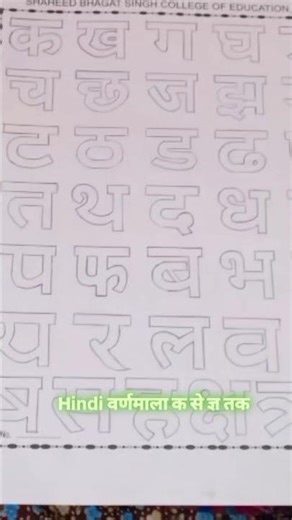 SHAHEED BHAGAT SINGH COLLEGE OF EDUCATION
क ख ग घ
च छ ज झ
ट ठ ड ढ
त थ द ध
प फ ब भ
य र ल व
ष स ह क्ष त्र
Hindi वर्णमाला क से ज्ञ तक
No.